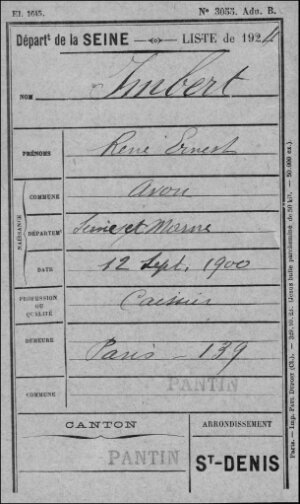 El. 1645. N° 3053. Adm. B.
Départ^t de la SEINE — LISTE de 1924
NOM Imbert
PRÉNOMS René Ernest
NAISSANCE
COMMUNE Avon
DÉPARTEM^t Seine et Marne
DATE 12 Sept. 1900
PROFESSION OU QUALITÉ Caissier
DEMEURE Paris - 139
COMMUNE PANTIN
CANTON
PANTIN
ARRONDISSEMENT
S^T-DENIS
Paris. — Imp. Paul Dupont (Cl.).